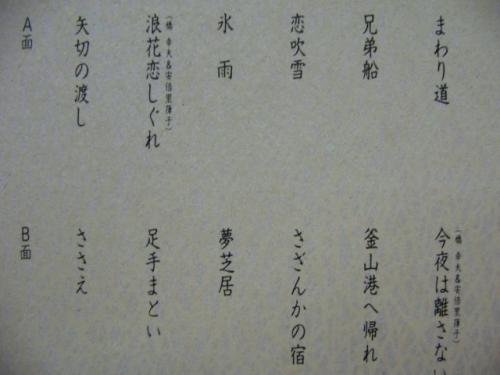 A面
矢切の渡し
浪花恋しぐれ
(橋 幸夫&安倍里葎子)
氷雨
恋吹雪
兄弟船
まわり道
B面
ささえ
足手まとい
夢芝居
さざんかの宿
釜山港へ帰れ
今夜は離さない
(橋 幸夫&安倍里葎子)